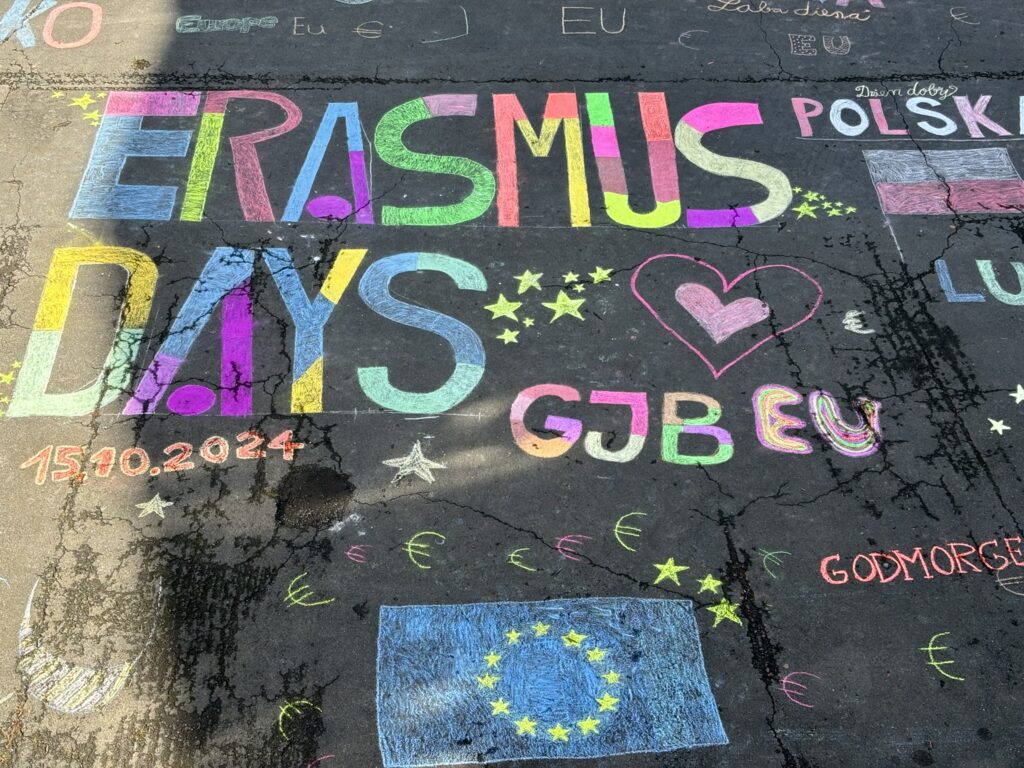 KO
Europe Eu € EU Laba diena €
€ EU
ERASMUS
Dzień dobry
POLSKA
DAYS
LU
€
GJB EU
15.10.2024
€ € € € €
€ €
GODMORGE
€
€
€
€